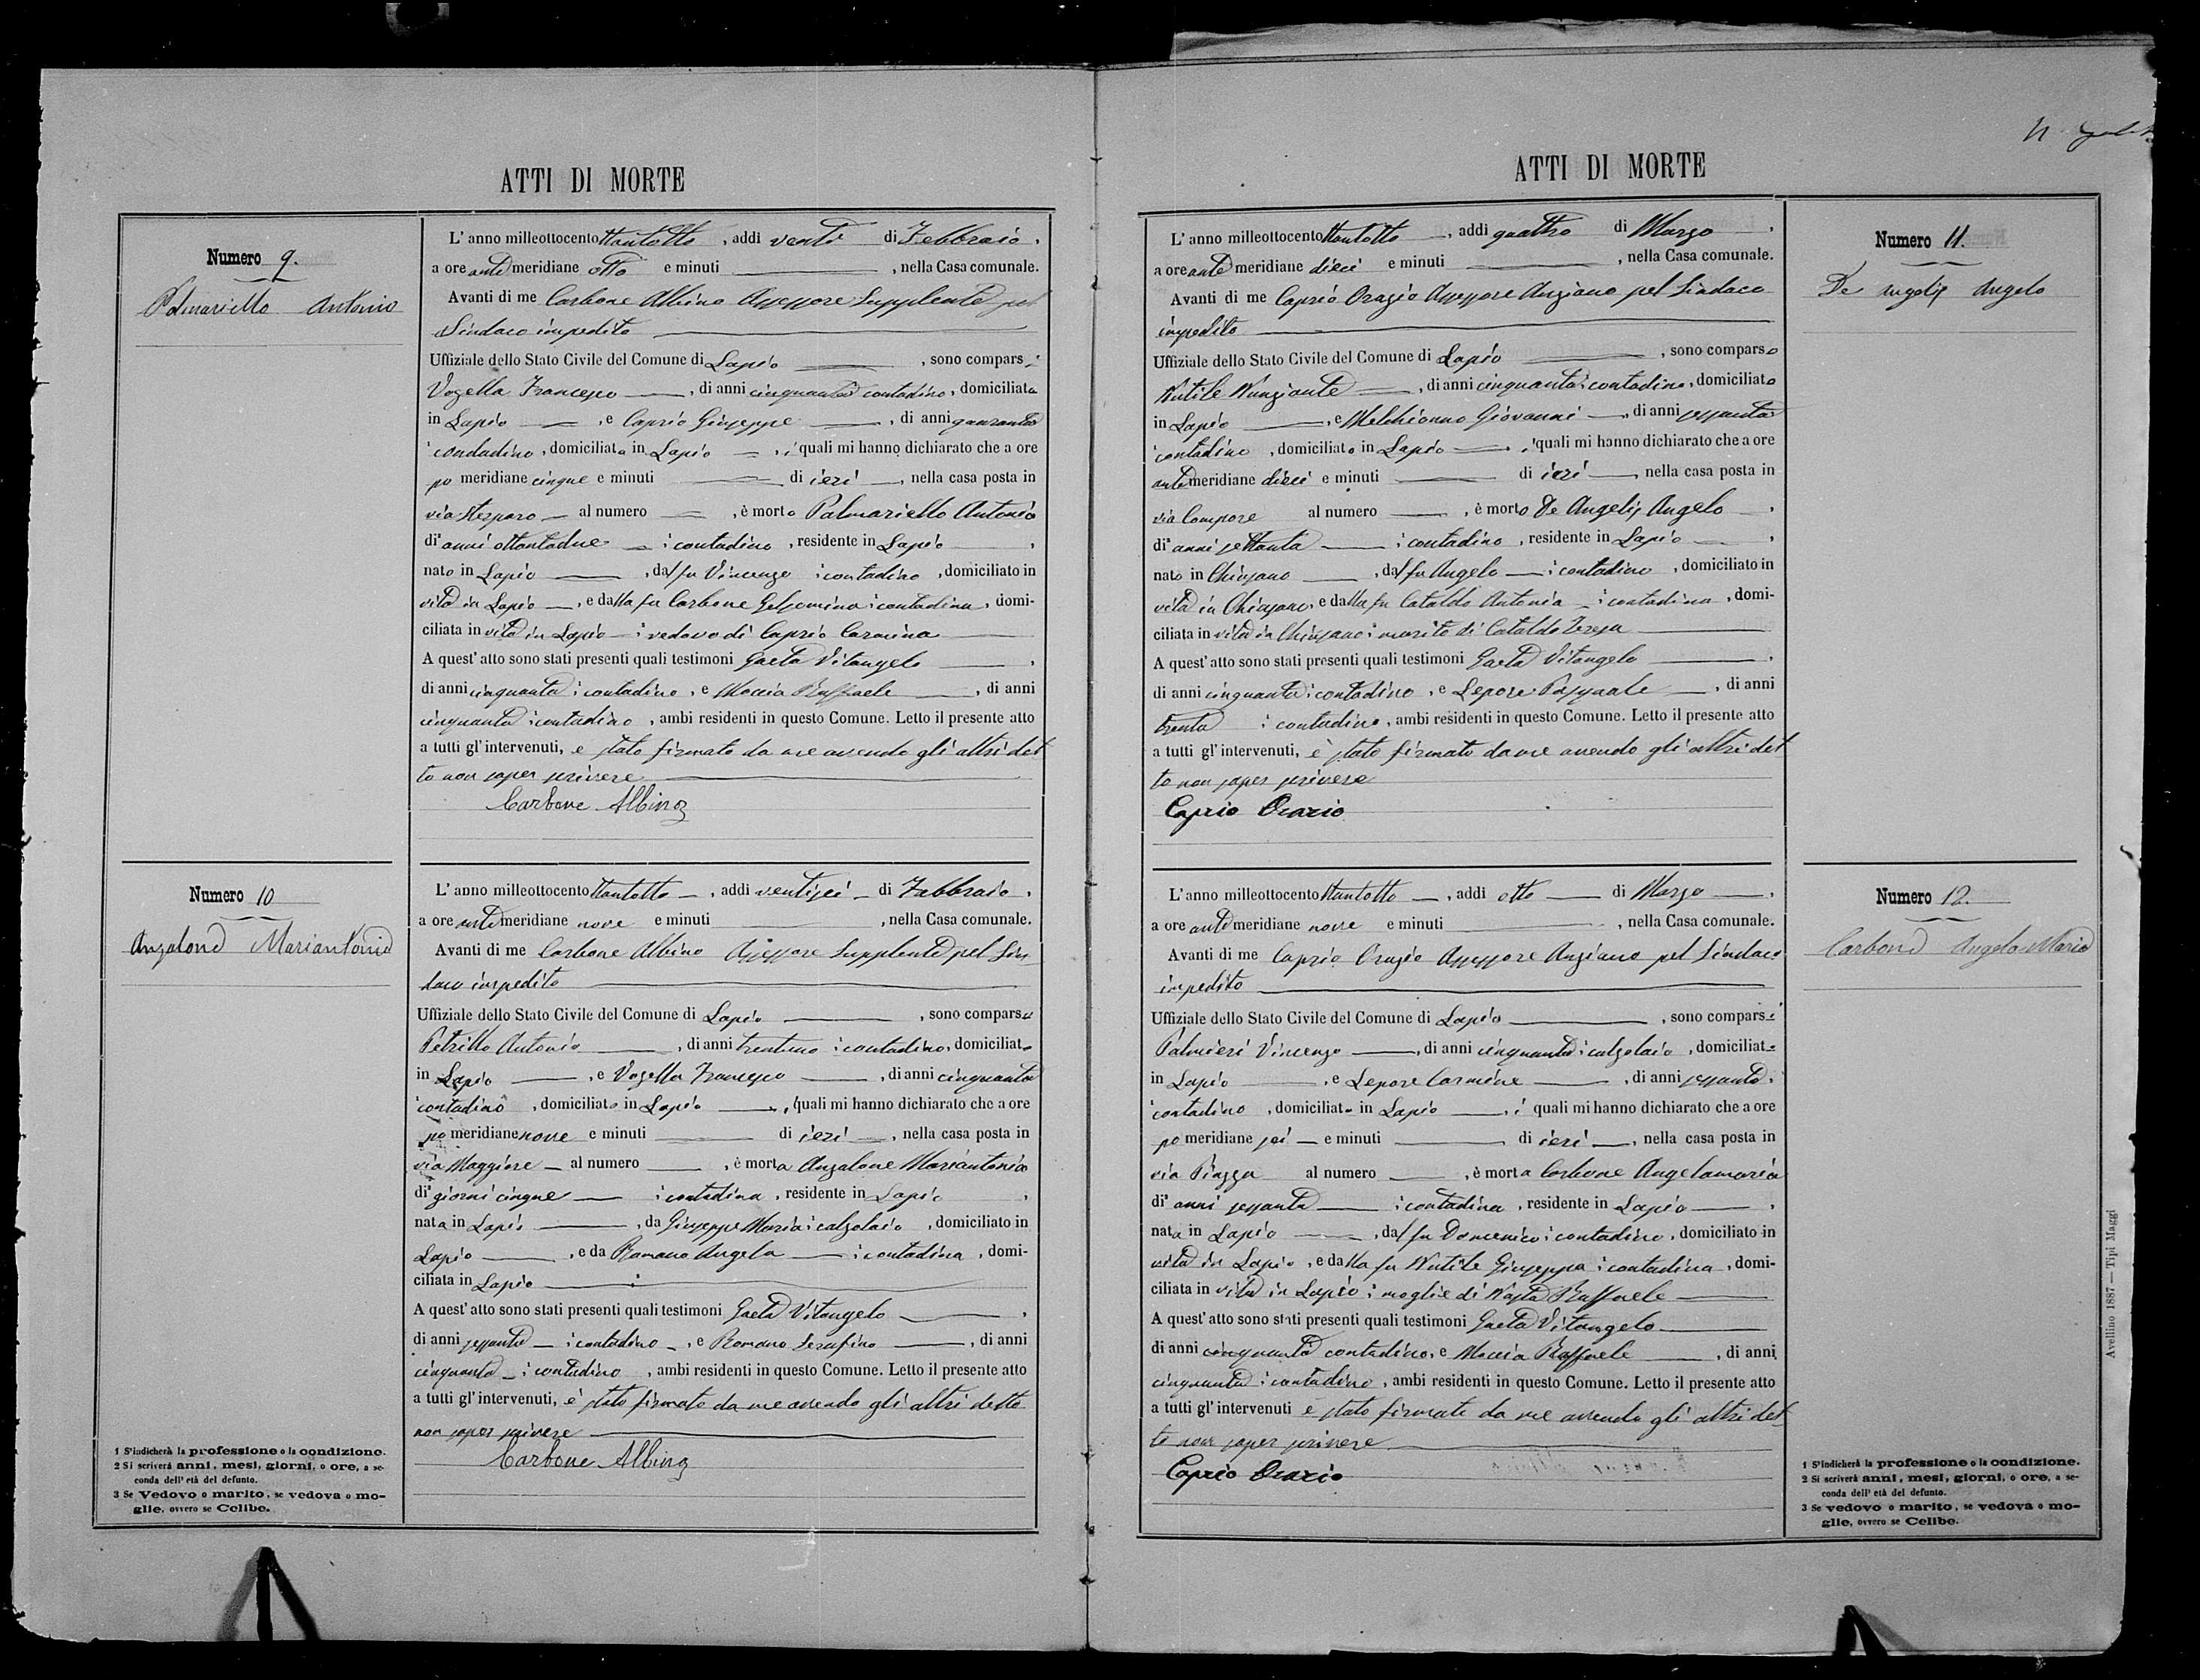 ATTI DI MORTE
Numero 9.
Palmariello Antonio
L' anno milleottocento ttantotto, addi venti di Febbraio,
a ore ante meridiane otto e minuti, nella Casa comunale.
Avanti di me Carbone Albino Assessore Supplente pel
Sindaco impedito
Uffiziale dello Stato Civile del Comune di Lapio, sono comparsi
Vozella Francesco, di anni cinquanta contadino, domiciliato
in Lapio, e Caprio Giuseppe, di anni quaranta
contadino, domiciliato in Lapio, i quali mi hanno dichiarato che a ore
po meridiane cinque e minuti di ieri, nella casa posta in
via al numero, è morto Palmariello Antonio
di anni ottantadue contadino, residente in Lapio,
nato in Lapio, dal fu Vincenzo contadino, domiciliato in
vita in Lapio, e dalla fu Carbone Gelsomina contadina, domi-
ciliata in vita in Lapio vedovo di Caprio Carmina
A quest' atto sono stati presenti quali testimoni Gaeta Vitangelo,
di anni cinquanta contadino, e Moccia Raffaele, di anni
cinquanta contadino, ambi residenti in questo Comune. Letto il presente atto
a tutti gl' intervenuti, è stato firmato da me avendo gli altri det
to non saper scrivere
Carbone Albino
Numero 10
Anzalone Mariantonia
L' anno milleottocento ttantotto, addi ventisei di Febbraio,
a ore ante meridiane nove e minuti, nella Casa comunale.
Avanti di me Carbone Albino Assessore Supplente pel Sin
daco impedito
Uffiziale dello Stato Civile del Comune di Lapio, sono comparsi
Petrillo Antonio, di anni trentuno contadino, domiciliato
in Lapio, e Vozella Francesco, di anni cinquanta
contadino, domiciliato in Lapio, i quali mi hanno dichiarato che a ore
po meridiane nove e minuti di ieri, nella casa posta in
via Maggiore al numero, è morta Anzalone Mariantonia
di giorni cinque contadina, residente in Lapio,
nata in Lapio, da Giuseppe Maria calzolaio, domiciliato in
Lapio, e da Romano Angela contadina, domi-
ciliata in Lapio
A quest' atto sono stati presenti quali testimoni Gaeta Vitangelo,
di anni sessanta contadino, e Romano Serafino, di anni
cinquanta contadino, ambi residenti in questo Comune. Letto il presente atto
a tutti gl' intervenuti, è stato firmato da me avendo gli altri detto
non saper scrivere
Carbone Albino
1 S'indicherà la professione o la condizione.
2 Si scriverà anni, mesi, giorni, o ore, a se-
conda dell' età del defunto.
3 Se Vedovo o marito, se vedova o mo-
glie, ovvero se Celibe.
ATTI DI MORTE
Numero 11.
De Angelis Angelo
L' anno milleottocento ttantotto, addi quattro di Marzo,
a ore ante meridiane dieci e minuti, nella Casa comunale.
Avanti di me Caprio Orazio Assessore Anziano pel Sindaco
impedito
Uffiziale dello Stato Civile del Comune di Lapio, sono comparso
Nutile Nunziante, di anni cinquanta contadino, domiciliato
in Lapio, e Melchionno Giovanni, di anni sessanta
contadino, domiciliato in Lapio, i quali mi hanno dichiarato che a ore
ante meridiane dieci e minuti di ieri, nella casa posta in
via Campore al numero, è morto De Angelis Angelo,
di anni settanta contadino, residente in Lapio,
nato in Chiusano, dal fu Angelo contadino, domiciliato in
vita in Chiusano, e dalla fu Cataldo Antonia contadina, domi-
ciliata in vita in Chiusano marito di Cataldo Teresa
A quest' atto sono stati presenti quali testimoni Gaeta Vitangelo,
di anni cinquanta contadino, e Lepore Pasquale, di anni
trenta contadino, ambi residenti in questo Comune. Letto il presente atto
a tutti gl' intervenuti, è stato firmato da me avendo gli altri det
to non saper scrivere
Caprio Orazio
Numero 12.
Carbone Angela Maria
L' anno milleottocento ttantotto, addi otto di Marzo,
a ore ante meridiane nove e minuti, nella Casa comunale.
Avanti di me Caprio Orazio Assessore Anziano pel Sindaco
impedito
Uffiziale dello Stato Civile del Comune di Lapio, sono comparsi
Palmieri Vincenzo, di anni cinquanta calzolaio, domiciliato
in Lapio, e Lepore Carmine, di anni sessanta
contadino, domiciliato in Lapio, i quali mi hanno dichiarato che a ore
po meridiane sei e minuti di ieri, nella casa posta in
via Piazza al numero, è morta Carbone Angelamaria
di anni sessanta contadina, residente in Lapio,
nata in Lapio, dal fu Domenico contadino, domiciliato in
vita in Lapio, e dalla fu Nutile Giuseppa contadina, domi-
ciliata in vita in Lapio moglie di Nasta Raffaele
A quest' atto sono stati presenti quali testimoni Gaeta Vitangelo
di anni cinquanta contadino, e Moccia Raffaele, di anni
cinquanta contadino, ambi residenti in questo Comune. Letto il presente atto
a tutti gl' intervenuti è stato firmato da me avendo gli altri det
to non saper scrivere
Caprio Orazio
1 S'indicherà la professione o la condizione.
2 Si scriverà anni, mesi, giorni, o ore, a se-
conda dell' età del defunto.
3 Se vedovo o marito, se vedova o mo-
glie, ovvero se Celibe.
Avellino 1887 — Tipi Maggi